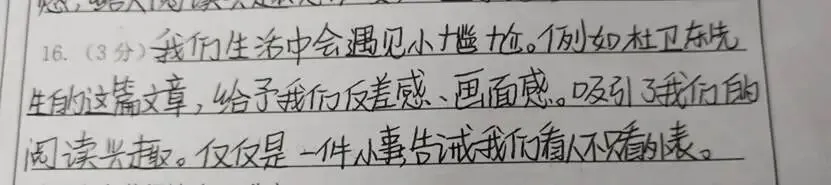 16.（3分）我们生活中会遇见小尴尬。例如杜卫东先
生的这篇文章，给予我们反差感、画面感。吸引了我们的
阅读兴趣。仅仅是一件小事告诫我们看人不只看外表。